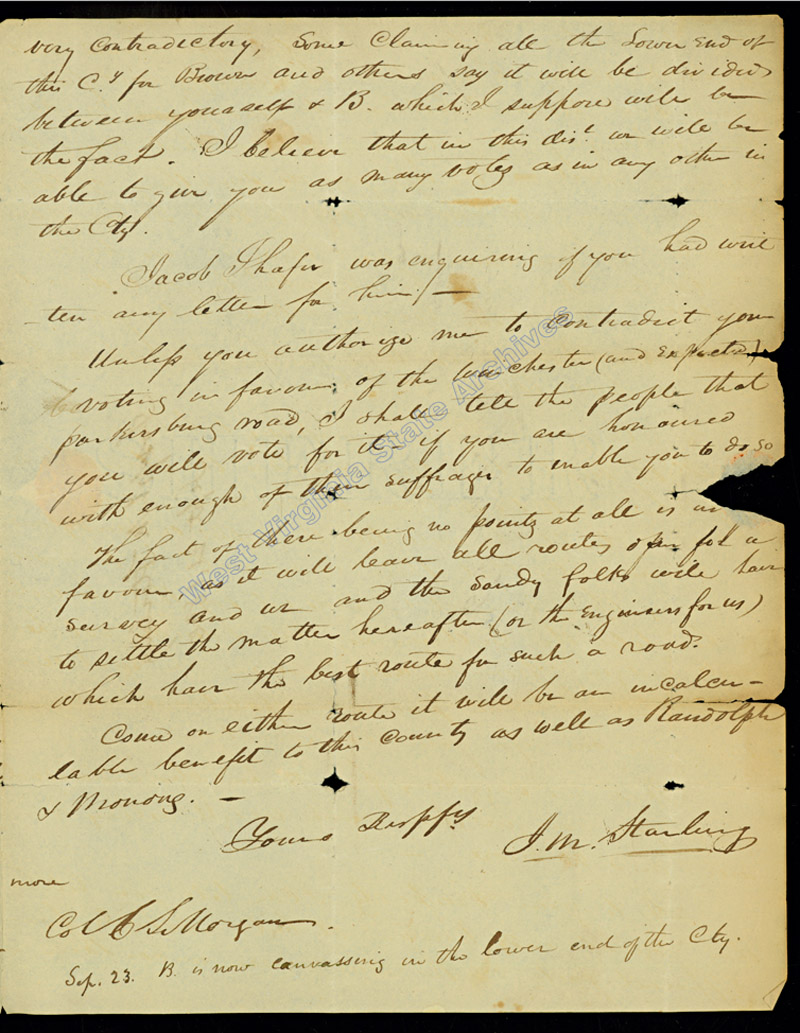 very contradictory, Some Claiming all the Lower End of
this C.y for Brown and others say it will be divided
between yourself & B. which I suppose will be
the fact. I believe that in this dist. we will be
able to give you as many votes as in any other in
the Cty.
Jacob Shafer was enquiring if you had writ
ten any letter for him. —
Unless you authorize me to Contradict your
voting in favour of the Winchester (and Expected)
parkersburg road, I shall tell the people that
you will vote for it if you are honoured
with enough of their suffrages to enable you to do so
The fact of there being no points at all is in
favour, as it will leave all routes open for a
survey and we and the Sandy folks will have
to settle the matter hereafter (or the Engineers for us)
which have the best route for such a road.
Come on either route it will be an incalcu-
lable benefit to this County as well as Randolph
& Monong. —
Yours Respfy
J. M. Starling
more
Col C S Morgan.
Sep. 23. B. is now canvassing in the lower end of the Cty.
West Virginia State Archives